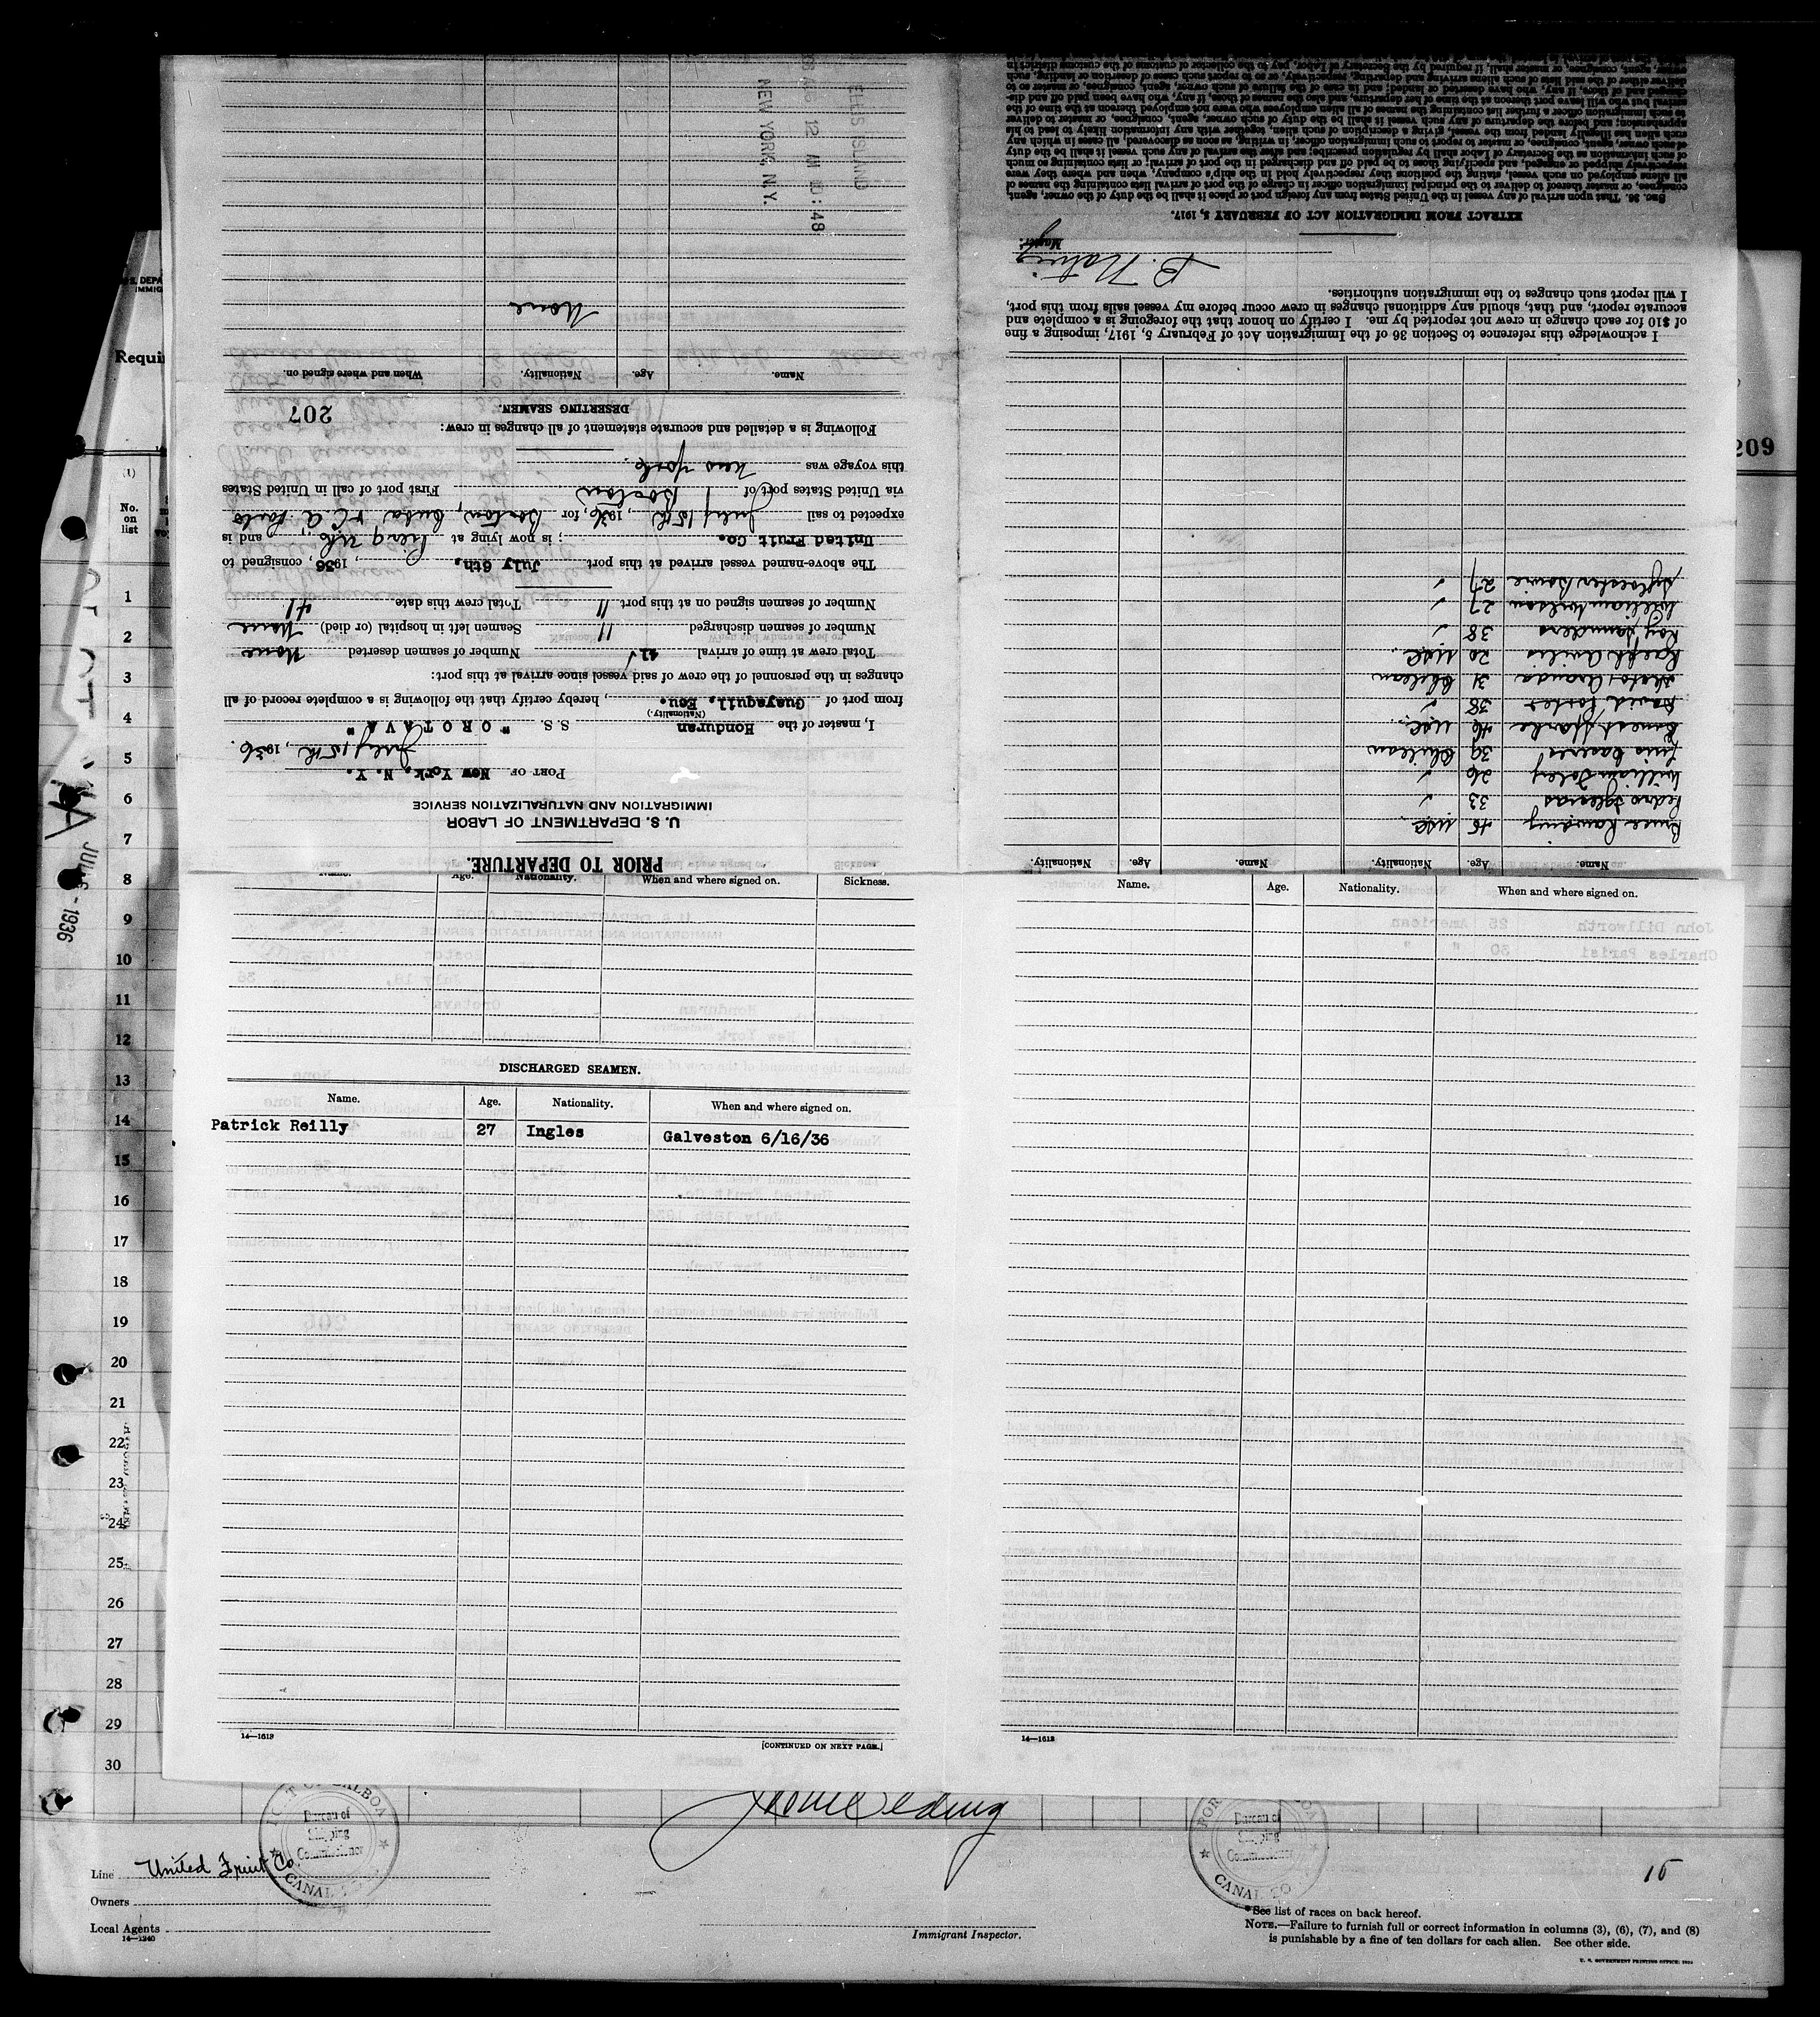 U. S. DEPA
IMMIG
Requir
209
(1)
No.
on
list
1
2
3
4
5
6
7
8
9
10
11
12
13
14
15
16
17
18
19
20
21
22
23
24
25
26
27
28
29
30
JUL 6 - 1936
ELLIS ISLAND
12 M 10:48
NEW YORK, N.Y.
PRIOR TO DEPARTURE.
U. S. DEPARTMENT OF LABOR
IMMIGRATION AND NATURALIZATION SERVICE
PORT OF New York, N. Y.
July 15th, 1936.
I, master of the Honduran S. S. "OROTAVA"
(Nationality.)
from port of Guayaquil, Ecu., hereby certify that the following is a complete record of all
changes in the personnel of the crew of said vessel since arrival at this port:
Total crew at time of arrival 41 Number of seamen deserted None
Number of seamen discharged 11 Seamen left in hospital (or died) None
Number of seamen signed on at this port 11 Total crew this date 41
The above-named vessel arrived at this port July 6th, 1936, consigned to
United Fruit Co. ; is now lying at Pier 9 and is
expected to sail July 15th, 1936, for Boston, Cuba, & C.A. Ports
via United States port of Boston First port of call in United States
this voyage was New York.
Following is a detailed and accurate statement of all changes in crew:
DESERTING SEAMEN. 207
Name. Age. Nationality. When and where signed on.
None
Name. Age. Nationality. Name. Age. Nationality.
Bruce Rawding 45 USC.
Pedro Iglesias 33 ✓
William Foley 26 ✓
Luis Caceres 39 Chilean
Ernest Sparke 46 USC.
David Porter 38 ✓
Hector Aranda 31 Chilean
Raefh Aviles 20 USC.
Roy Saunders 38 ✓
William Wilson 27 ✓
Sylvester Bowie 27 ✓
I acknowledge this reference to Section 36 of the Immigration Act of February 5, 1917, imposing a fine
of $10 for each change in crew not reported by me. I certify on honor that the foregoing is a complete and
accurate report, and that, should any additional changes in crew occur before my vessel sails from this port,
I will report such changes to the immigration authorities.
Master.
EXTRACT FROM IMMIGRATION ACT OF FEBRUARY 5, 1917.
SEC. 36. That upon arrival of any vessel in the United States from any foreign port or place it shall be the duty of the owner, agent,
consignee, or master thereof to deliver to the principal immigration officer in charge of the port of arrival lists containing the names of
all aliens employed on such vessel, stating the positions they respectively hold in the ship's company, when and where they were
respectively shipped or engaged, and specifying those to be paid off and discharged in the port of arrival; or lists containing so much
of such information as the Secretary of Labor shall by regulation prescribe; and after the arrival of any such vessel it shall be the duty
of such owner, agent, consignee, or master to report to such immigration officer, in writing, as soon as discovered, all cases in which any
such alien has illegally landed from the vessel, giving a description of such alien, together with any information likely to lead to his
apprehension; and before the departure of any such vessel it shall be the duty of such owner, agent, consignee, or master to deliver
to such immigration officer a further list containing the names of all alien employees who were not employed thereon at the time of the
arrival but who will leave port thereon at the time of her departure, and also the names of those, if any, who have been paid off and dis-
charged and of those, if any, who have deserted or landed; and in case of the failure of such owner, agent, consignee, or master so to
deliver either of the said lists of such aliens arriving and departing, respectively, or so to report such cases of desertion or landing, such
owner, agent, consignee, or master shall, if required by the Secretary of Labor, pay to the collector of customs of the customs district in
Name. Age. Nationality. When and where signed on. Sickness.
DISCHARGED SEAMEN.
Name. Age. Nationality. When and where signed on.
Patrick Reilly 27 Ingles Galveston 6/16/36
14—1613
[CONTINUED ON NEXT PAGE.]
Name. Age. Nationality. When and where signed on.
John Dillworth 25 American
Charles Parisi 30 " "
14—1613
PORT OF BALBOA
Bureau of
Shipping
Commissioner
CANAL ZO
Bureau of
Shipping
Commissioner
CANAL ZO
Line United Fruit Co.
Owners
Local Agents
14—1240
Immigrant Inspector.
15
*See list of races on back hereof.
NOTE.—Failure to furnish full or correct information in columns (3), (6), (7), and (8)
is punishable by a fine of ten dollars for each alien. See other side.
U. S. GOVERNMENT PRINTING OFFICE: